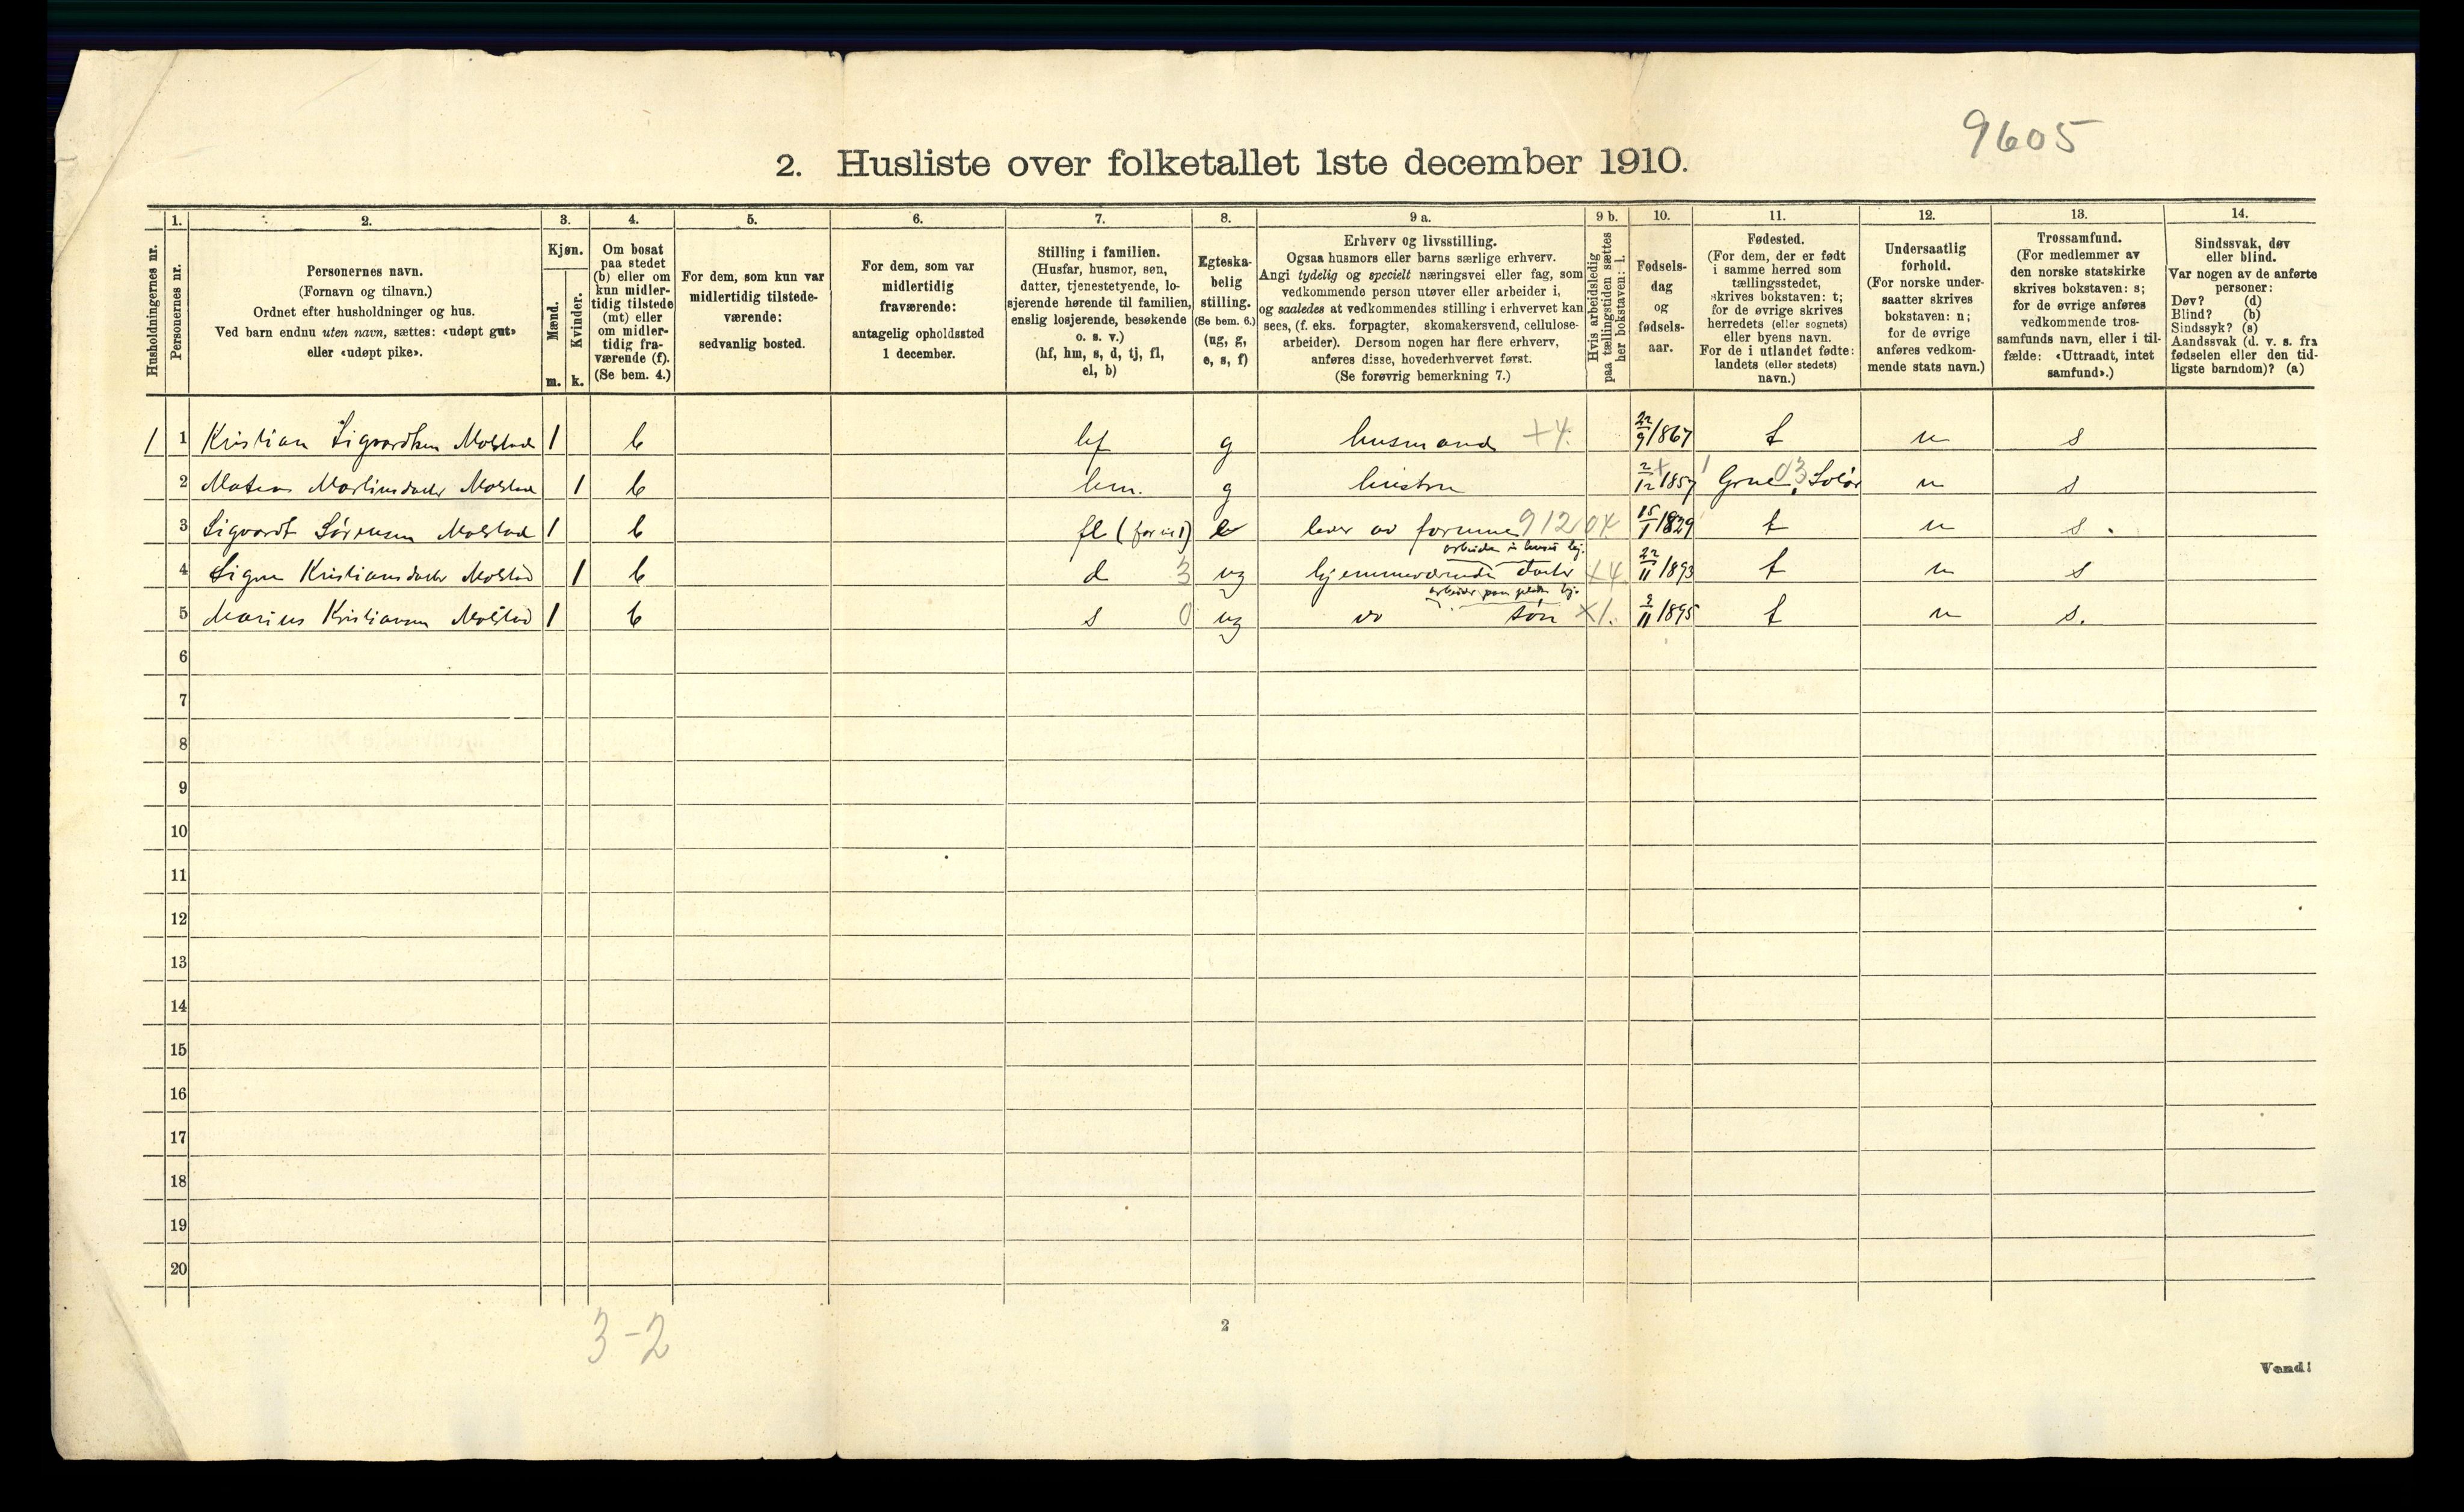 9605
2. Husliste over folketallet 1ste december 1910.
Husholdningernes nr.
1.
Personernes nr.
2.
Personernes navn.
(Fornavn og tilnavn.)
Ordnet efter husholdninger og hus.
Ved barn endnu uten navn, sættes: «udøpt gut»
eller «udøpt pike».
3.
Kjøn.
Mænd.
m.
Kvinder.
k.
4.
Om bosat
paa stedet
(b) eller om
kun midler-
tidig tilstede
(mt) eller
om midler-
tidig fra-
værende (f).
(Se bem. 4.)
5.
For dem, som kun var
midlertidig tilstede-
værende:
sedvanlig bosted.
6.
For dem, som var
midlertidig
fraværende:
antagelig opholdssted
1 december.
7.
Stilling i familien.
(Husfar, husmor, søn,
datter, tjenestetyende, lo-
sjerende hørende til familien,
enslig losjerende, besøkende
o. s. v.)
(hf, hm, s, d, tj, fl,
el, b)
8.
Egteska-
belig
stilling.
(Se bem. 6.)
(ug, g,
e, s, f)
9 a.
Erhverv og livsstilling.
Ogsaa husmors eller barns særlige erhverv.
Angi tydelig og specielt næringsvei eller fag, som
vedkommende person utøver eller arbeider i,
og saaledes at vedkommendes stilling i erhvervet kan
sees, (f. eks. forpagter, skomakersvend, cellulose-
arbeider). Dersom nogen har flere erhverv,
anføres disse, hovederhvervet først.
(Se forøvrig bemerkning 7.)
9 b.
Hvis arbeidsledig
paa tællingstiden sættes
her bokstaven: l.
10.
Fødsels-
dag
og
fødsels-
aar.
11.
Fødested.
(For dem, der er født
i samme herred som
tællingsstedet,
skrives bokstaven: t;
for de øvrige skrives
herredets (eller sognets)
eller byens navn.
For de i utlandet fødte:
landets (eller stedets)
navn.)
12.
Undersaatlig
forhold.
(For norske under-
saatter skrives
bokstaven: n;
for de øvrige
anføres vedkom-
mende stats navn.)
13.
Trossamfund.
(For medlemmer av
den norske statskirke
skrives bokstaven: s;
for de øvrige anføres
vedkommende tros-
samfunds navn, eller i til-
fælde: «Uttraadt, intet
samfund».)
14.
Sindssvak, døv
eller blind.
Var nogen av de anførte
personer:
Døv? (d)
Blind? (b)
Sindssyk? (s)
Aandssvak (d. v. s. fra
fødselen eller den tid-
ligste barndom)? (a)
1 1 Kristian Sigvardsen Molstad 1 b hf g husmand +4. 22/9 1867 t n s
2 Matea Martinsdatter Molstad 1 b hm. g hustru 2/12 1857 Grue, Solør 03 n s
3 Sigvardt Sørensen Molstad 1 b fl e lever av formue 912 04 15/1 1829 t n s.
arbeider i huset
4 Signe Kristiansdatter Molstad 1 b d 3 ug hjemmeværende datter +4 22/11 1893 t n s
5 Marius Kristiansen Molstad 1 b s 0 ug do søn ×1. 9/11 1895 t n s.
6
7
8
9
10
11
12
13
14
15
16
17
18
19
20
3-2
2
Vend!